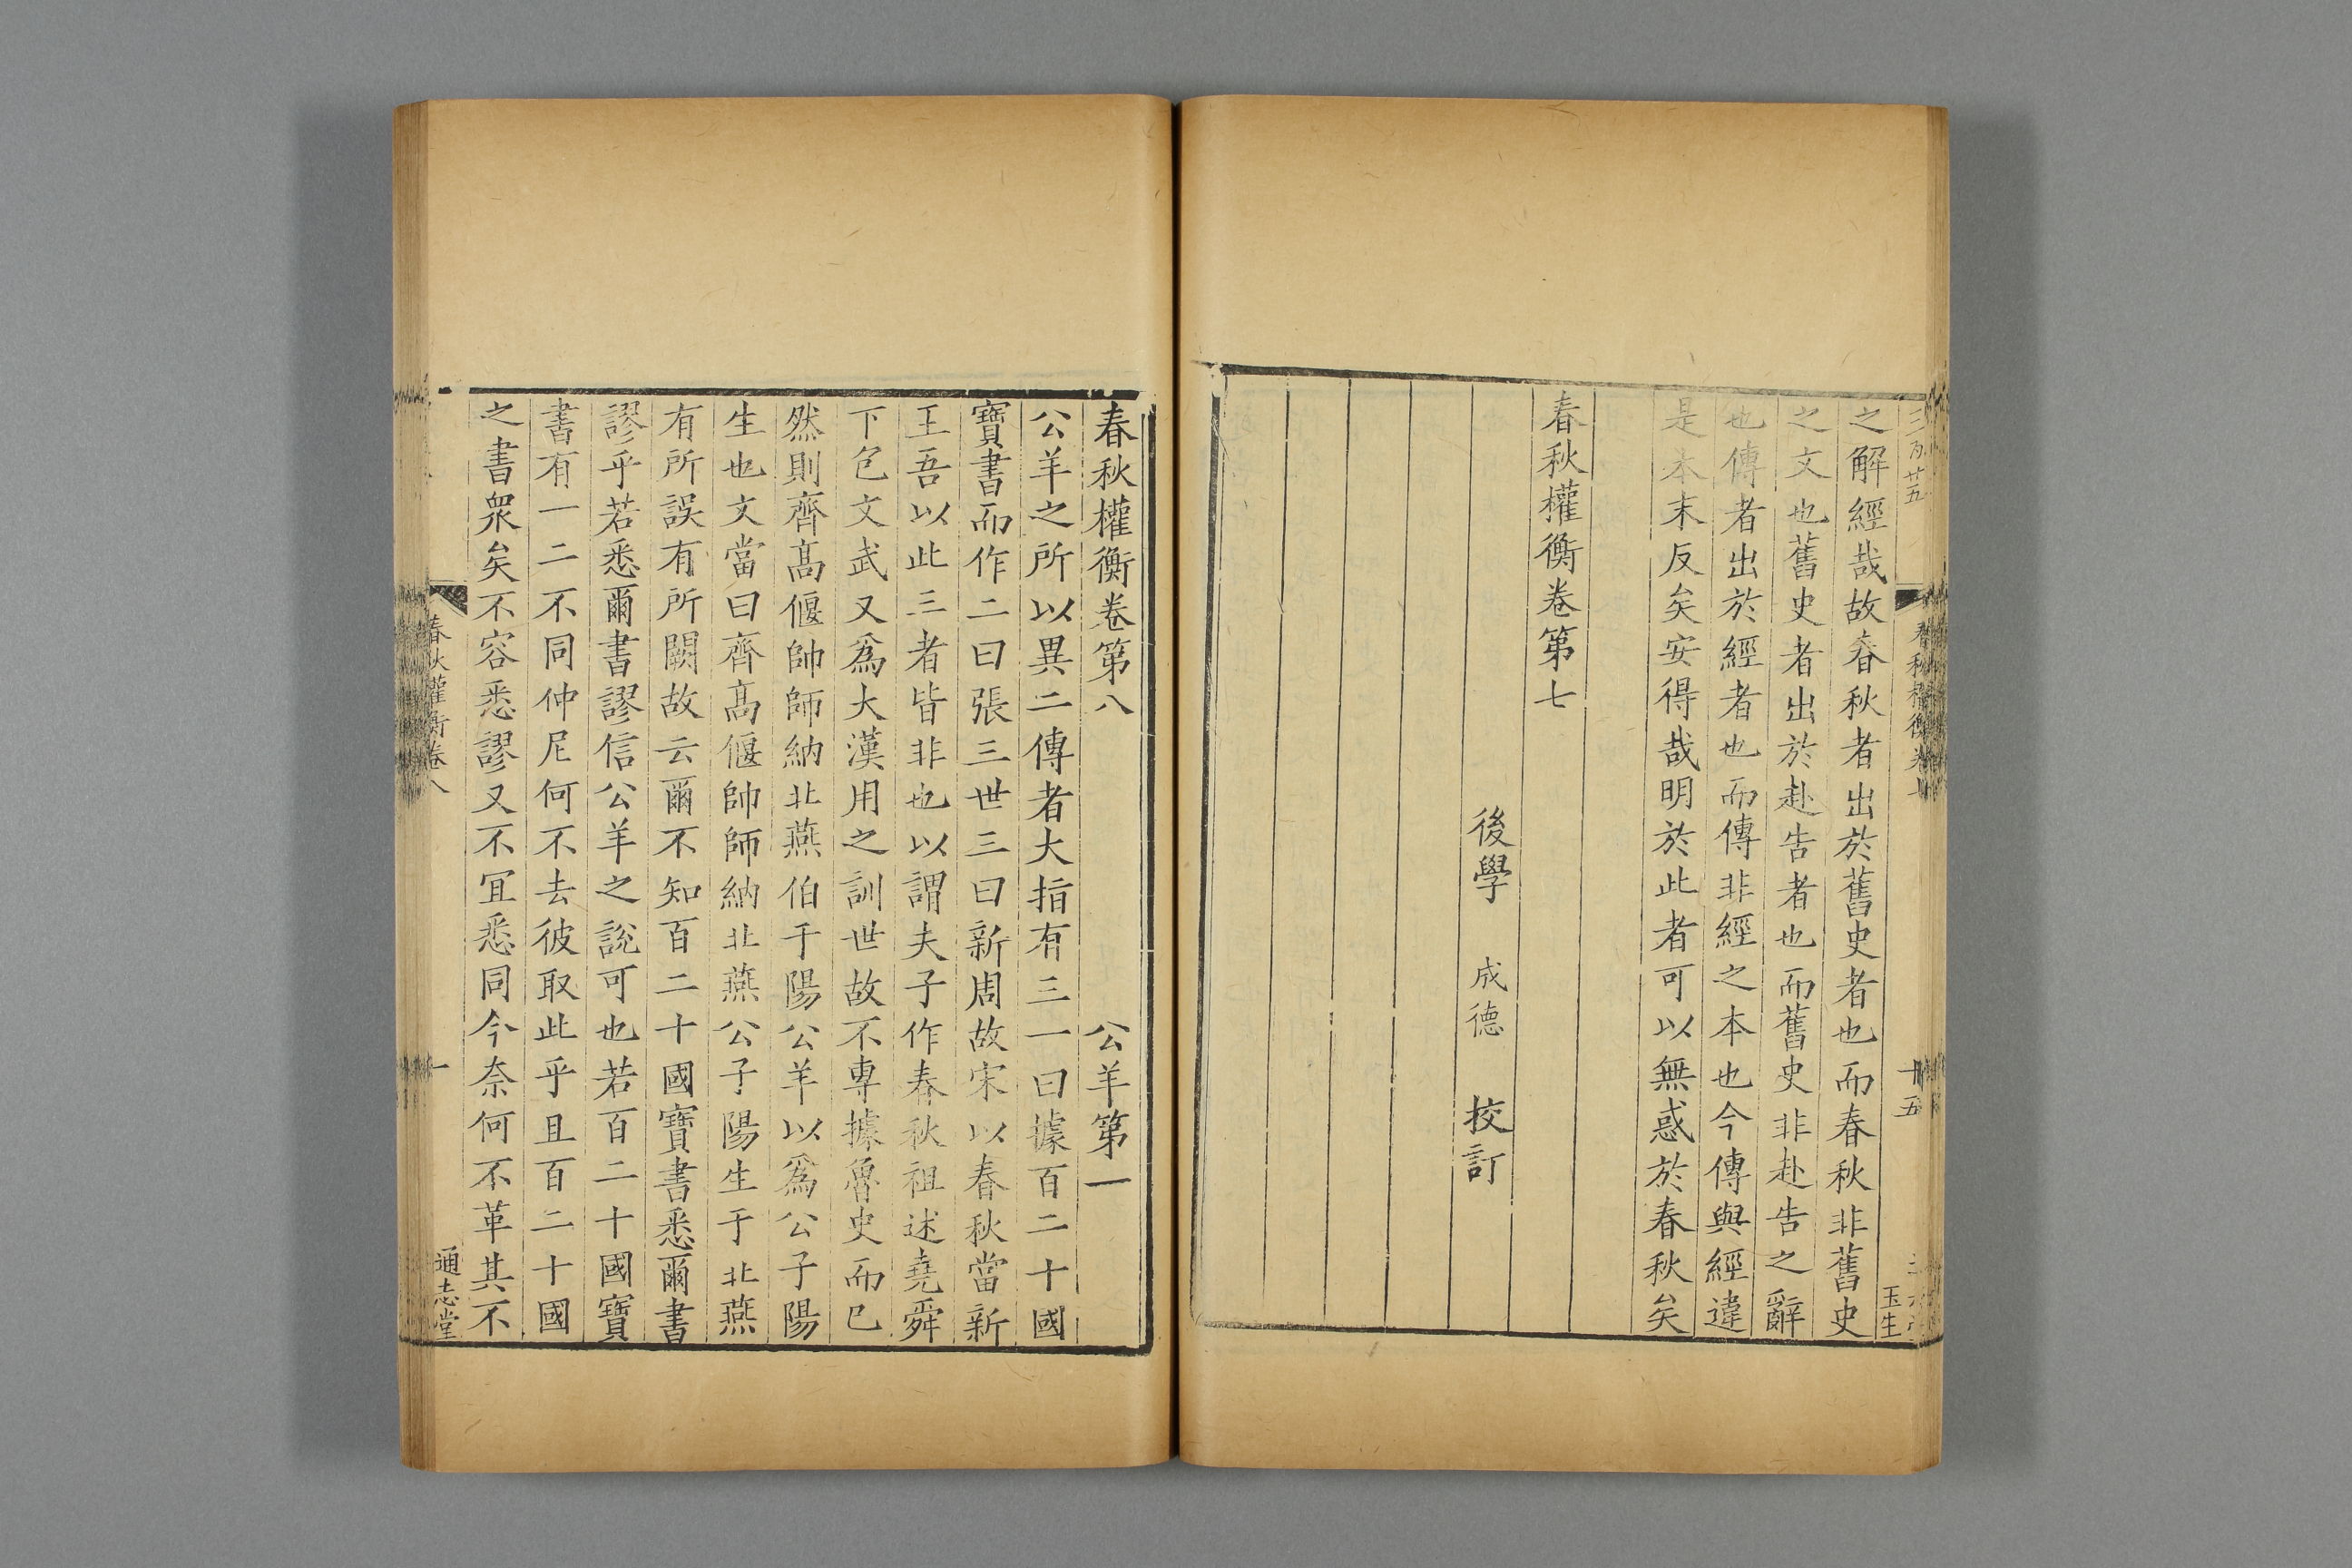 之解經哉故春秋者出於舊史者也而春秋非舊史
之文也舊史者出於赴告者也而舊史非赴告之辭
也傳者出於經者也而傳非經之本也今傳與經違
是本末反矣安得哉明於此者可以無惑於春秋矣
春秋權衡卷第七
後學 成德 校訂
十五
玉生
春秋權衡卷第八 公羊第一
公羊之所以異二傳者大指有三一曰據百二十國
寶書而作二曰張三世三曰新周故宋以春秋當新
王吾以此三者皆非也以謂夫子作春秋祖述堯舜
下包文武又爲大漢用之訓世故不專據魯史而已
然則齊髙偃帥師納北燕伯于陽公羊以爲公子陽
生也文當曰齊髙偃帥師納北燕公子陽生于北燕
有所誤有所闕故云爾不知百二十國寶書悉爾書
謬乎若悉爾書謬信公羊之說可也若百二十國寶
書有一二不同仲尼何不去彼取此乎且百二十國
之書衆矣不容悉謬又不冝悉同今奈何不革其不
春秋權衡卷八
一
通志堂